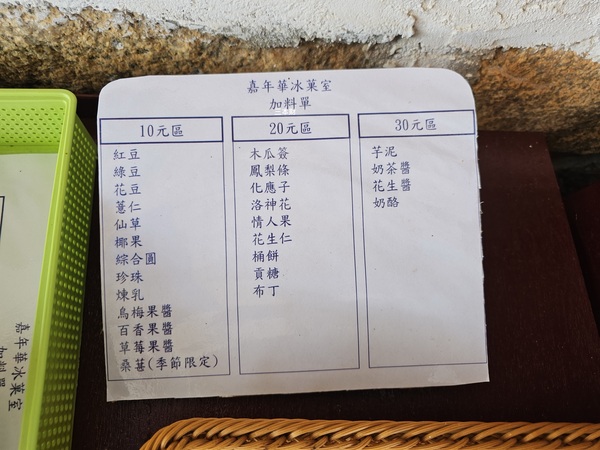 嘉年華冰菓室
加料單
10元區
紅豆
綠豆
花豆
薏仁
仙草
椰果
綜合圓
珍珠
煉乳
烏梅果醬
百香果醬
草莓果醬
桑葚(季節限定)
20元區
木瓜簽
鳳梨條
化應子
洛神花
情人果
花生仁
桶餅
貢糖
布丁
30元區
芋泥
奶茶醬
花生醬
奶酪
嘉年華冰菓室
加料單